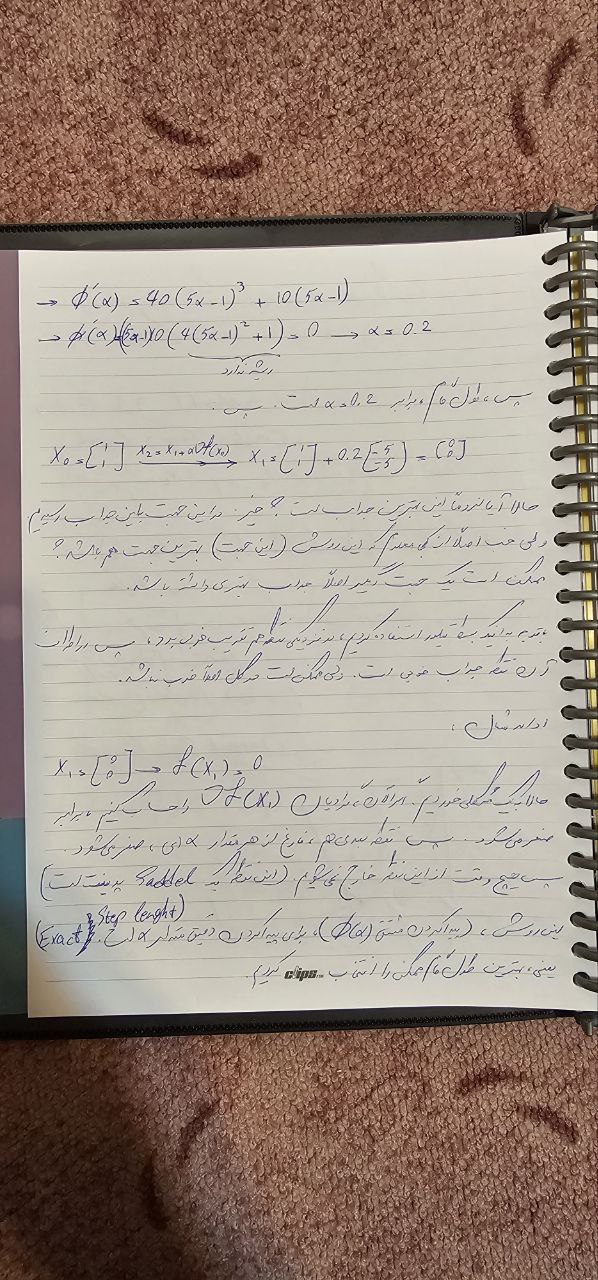 → φ'(α) = 40(5α-1)³ + 10(5α-1)
→ φ'(α) = (5α-1)10(4(5α-1)²+1) = 0 → α = 0.2
ریشه ندارد
پس، طول گام، برابر α = 0.2 است. پس:
X₀ = [1 1] X₂ = X₁ + α∇f(x₀) → X₁ = [1 1] + 0.2[-5 -5] = [0 0]
حالا آیا لزوماً این بهترین جواب است؟ خیر. در این جهت باین جواب رسیدیم
ولی خب اصلاً از کجا معلوم که این روش (این جهت) بهترین جهت هم باشه؟
ممکن است یک جهت دیگر اصلاً جواب بهتری داشته باشه.
با توجه به اینکه بسط تیلور استفاده کردیم، در نزدیکی نقطه هم تقریب خوبی بود، پس در اطراف
آن نقطه جواب خوبی است. ولی ممکن است در کل اصلاً خوب نباشه.
ادامه مثال:
X₁ = [0 0] → f(X₁) = 0
حالا به یک مشکلی خوردیم. اگر الان گرادیان ∇f(X₁) را حساب کنیم، برابر
صفر می‌شود. پس نقطه بعدی هم، فارغ از هر مقدار α ای، صفر می‌شود.
پس هیچ وقت از این نقطه خارج نمی‌شویم. (این نقطه یه Saddel پوینت است)
این روش، (پیدا کردن مشتق φ(α))، برای پیدا کردن دقیق مقدار α است. (Exact Step lenght)
یعنی، بهترین طول گام ممکن را انتخاب کردیم.
clips